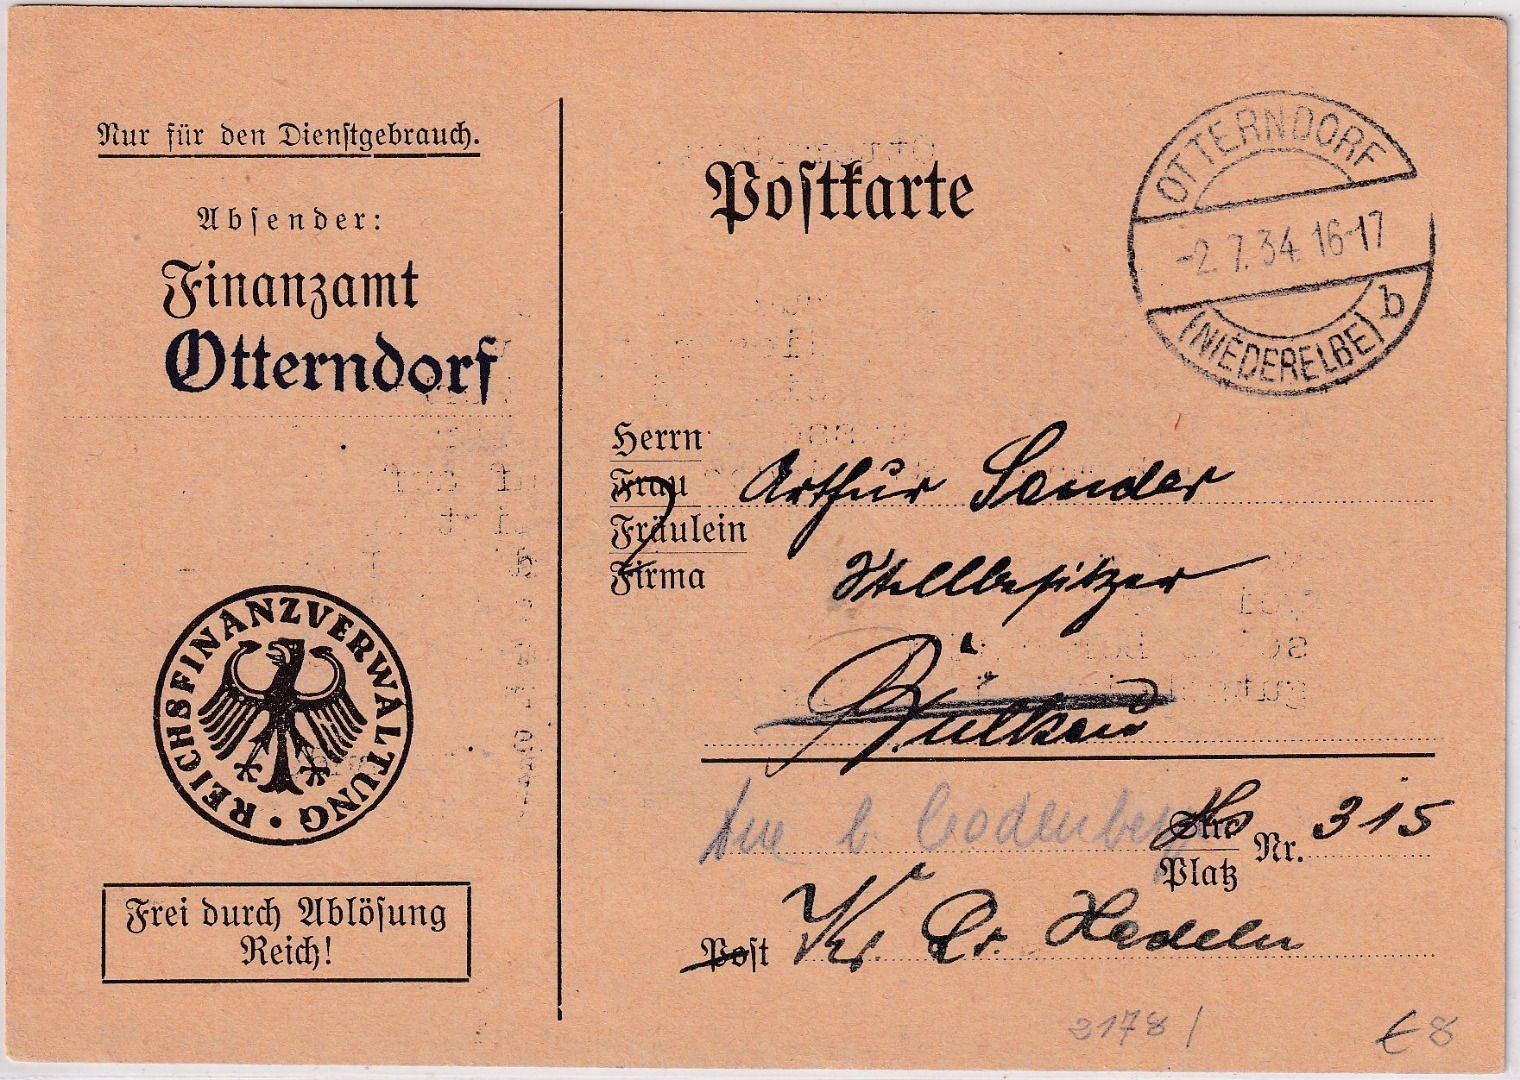 Nur für den Dienstgebrauch.
Absender:
Finanzamt
Otterndorf
REICHSFINANZVERWALTUNG
Frei durch Ablösung
Reich!
Postkarte
OTTERNDORF
-2.7.34. 16-17
(NIEDERELBE) b
Herrn
Frau
Fräulein
Firma
Arthur Sander
Stellbesitzer
Bülkau
b. Cadenberge
Platz
Nr. 315
Post
Kr. Hadeln
2178 /
€ 8